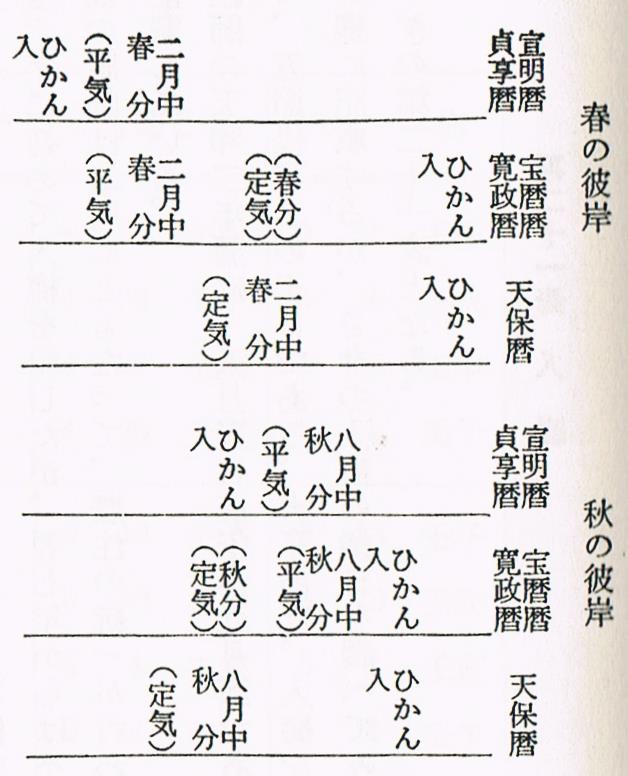 春の彼岸
宣明暦
貞享暦
二月中
春分
（平気）
ひかん
入
宝暦暦
寛政暦
ひかん
入
（春分）
（定気）
二月中
春分
（平気）
天保暦
ひかん
入
二月中
春分
（定気）
秋の彼岸
宣明暦
貞享暦
八月中
秋分
（平気）
ひかん
入
宝暦暦
寛政暦
ひかん
入
八月中
秋分
（平気）
（秋分）
（定気）
天保暦
ひかん
入
八月中
秋分
（定気）